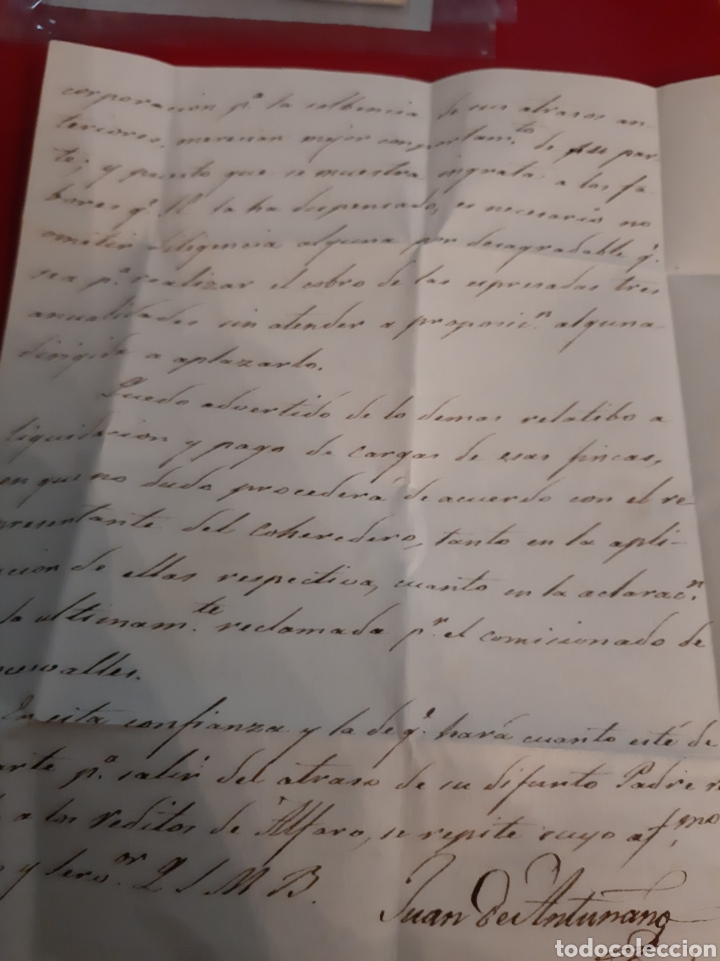 corporacion p.ª la solbencia de sus atrasos an-
teriores, merecian mejor comportam.to de su par-
te; y puesto que se muestra ingrata a los fa-
bores q.e V. la ha dispensado, es necesario no
omitir diligencia alguna por desagradable q.e
sea p.ª realizar el cobro de las espresadas tres
anualidades sin atender a proposic.n alguna
dirigida a aplazarlo.
Quedo advertido de lo demas relatibo a
liquidacion y pago de cargas de esas fincas,
en que no dudo procederá de acuerdo con el re
presentante del coheredero, tanto en la apli-
cacion de ellas respectiva, cuanto en la aclarac.n
la ultimam.te reclamada p.r el comisionado de
En esta confianza y la de q.e hará cuanto esté de
parte p.ª salir del atraso de su difunto Padre
a los reditos de Alfaro, se repite suyo af.mo
y Serv.or Q S M B.
Juan de Antuñano
todocoleccion